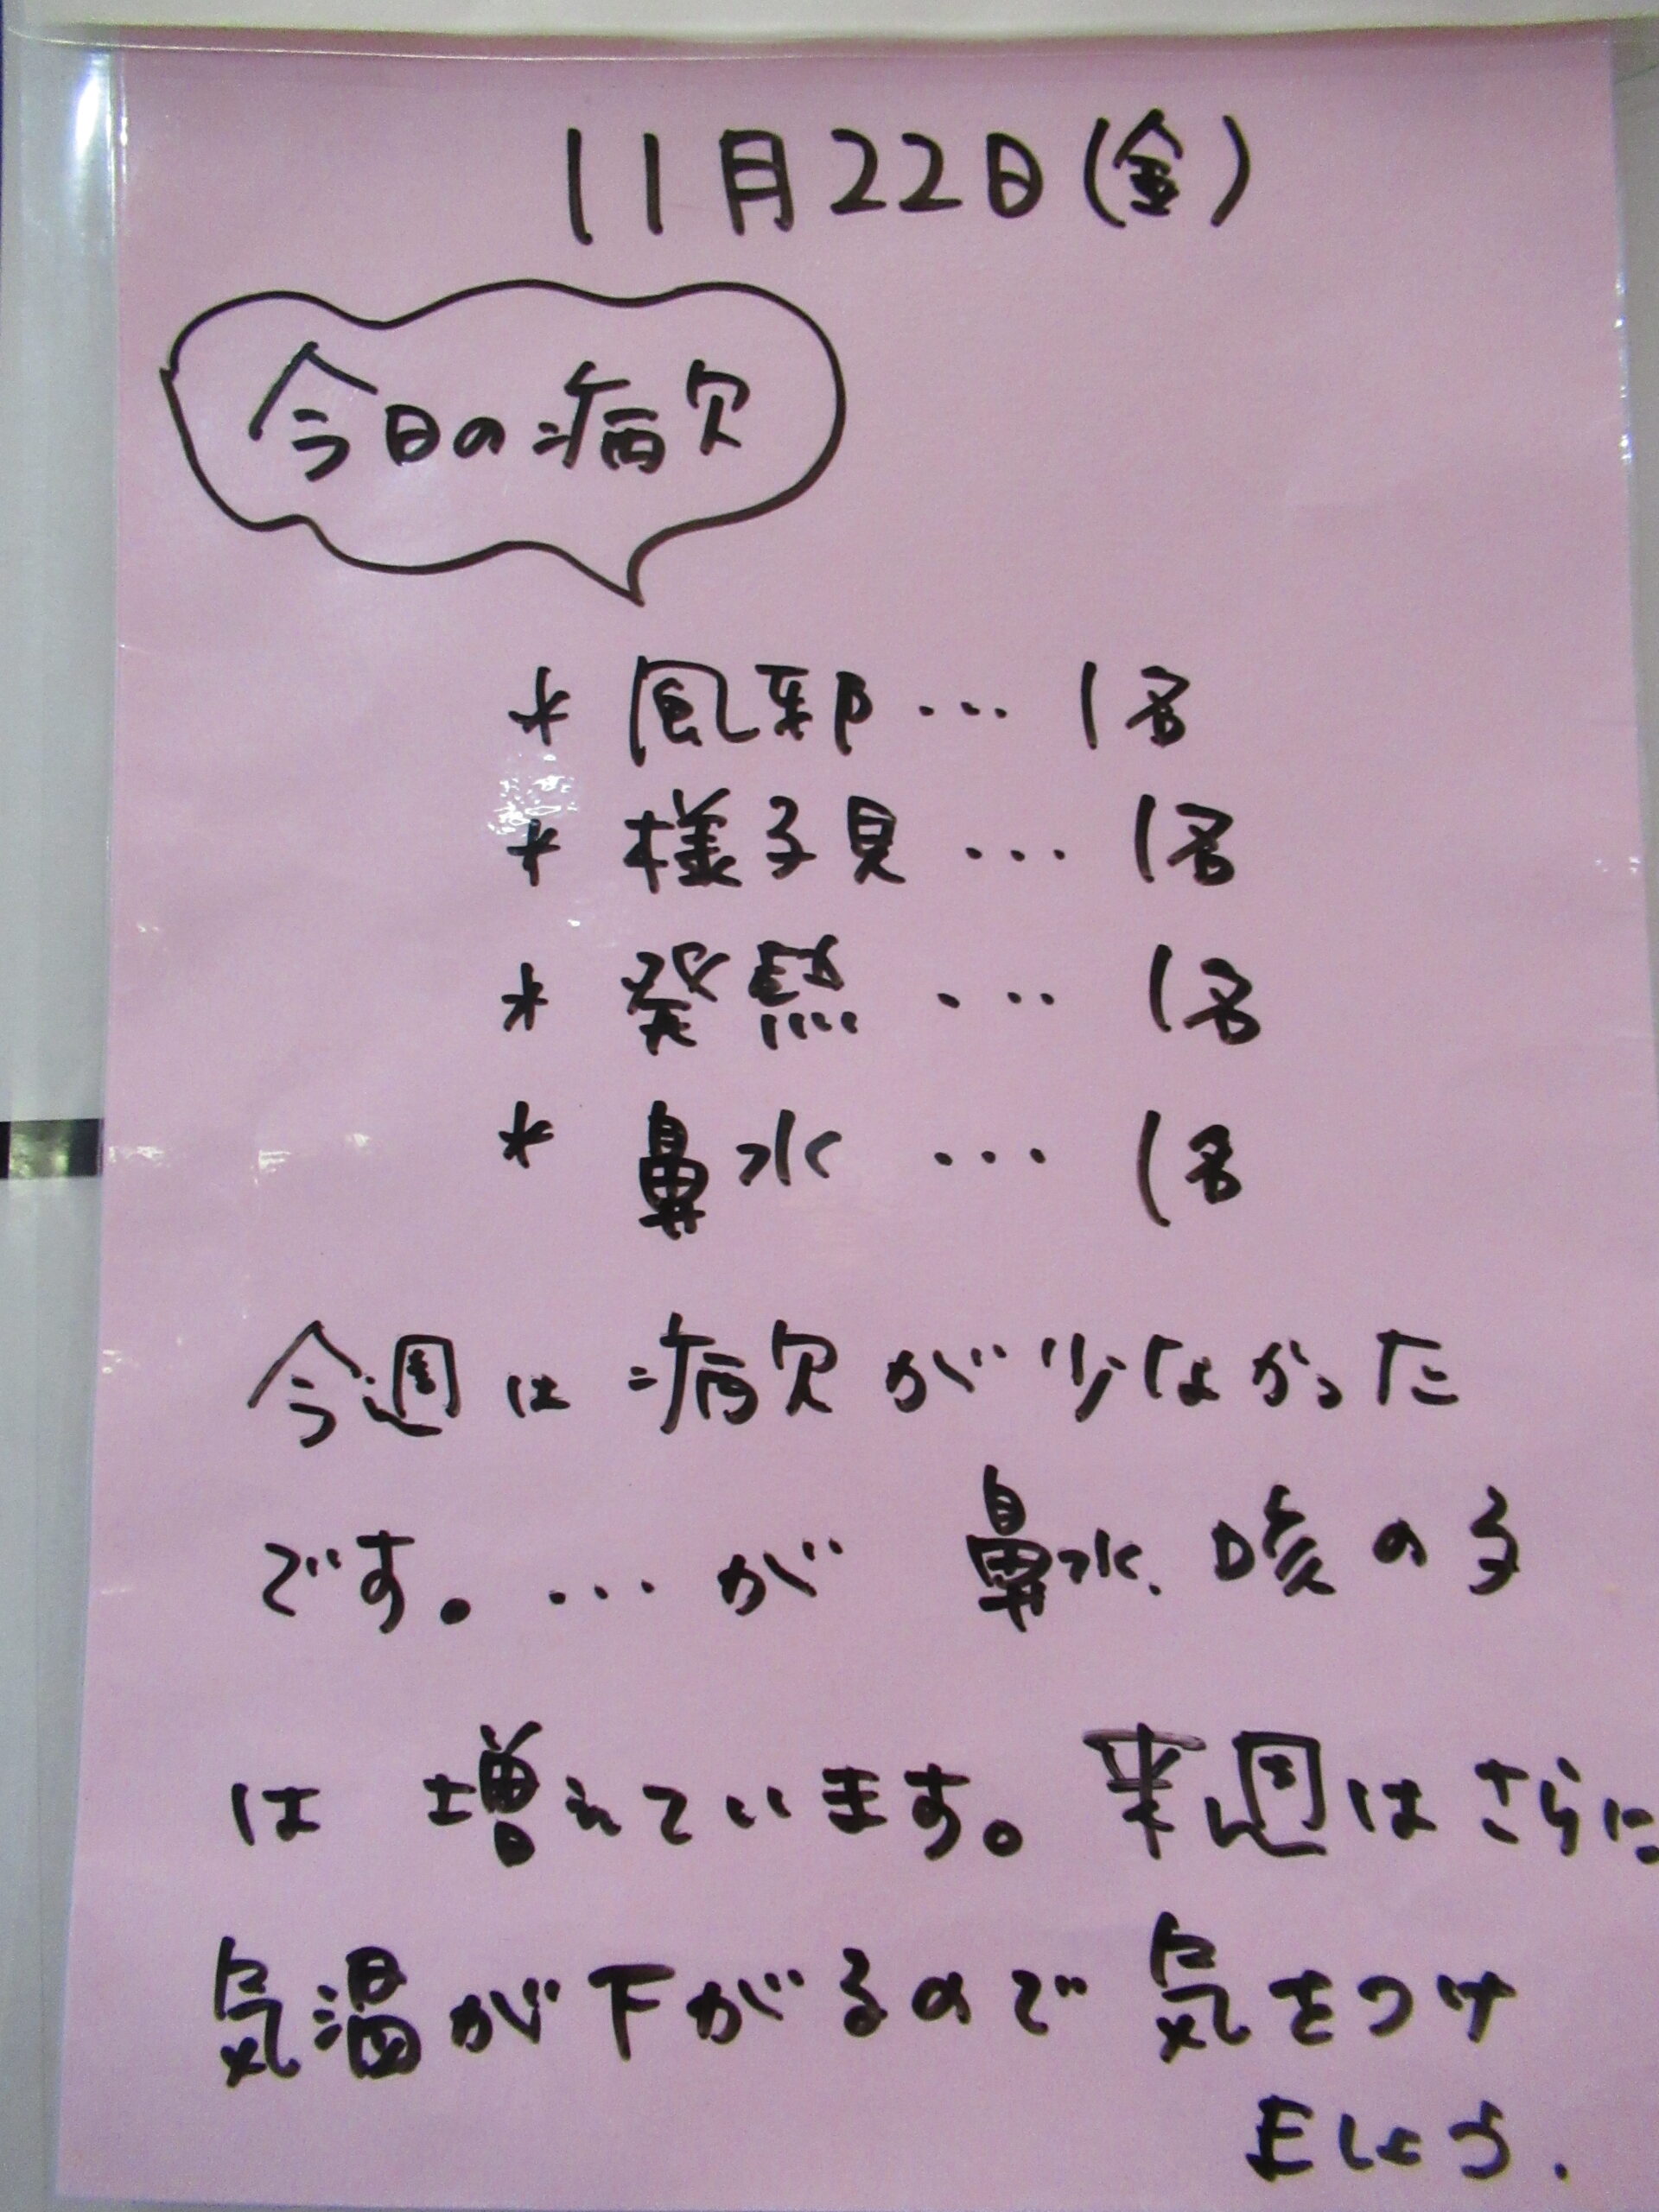 11月22日(金)
今日の病欠
* 風邪… 1名
* 様子見… 1名
* 発熱… 1名
* 鼻水… 1名
今週は病欠が少なかった
です。…が 鼻水、咳の子
は 増えています。来週はさらに
気温が下がるので気をつけ
ましょう.